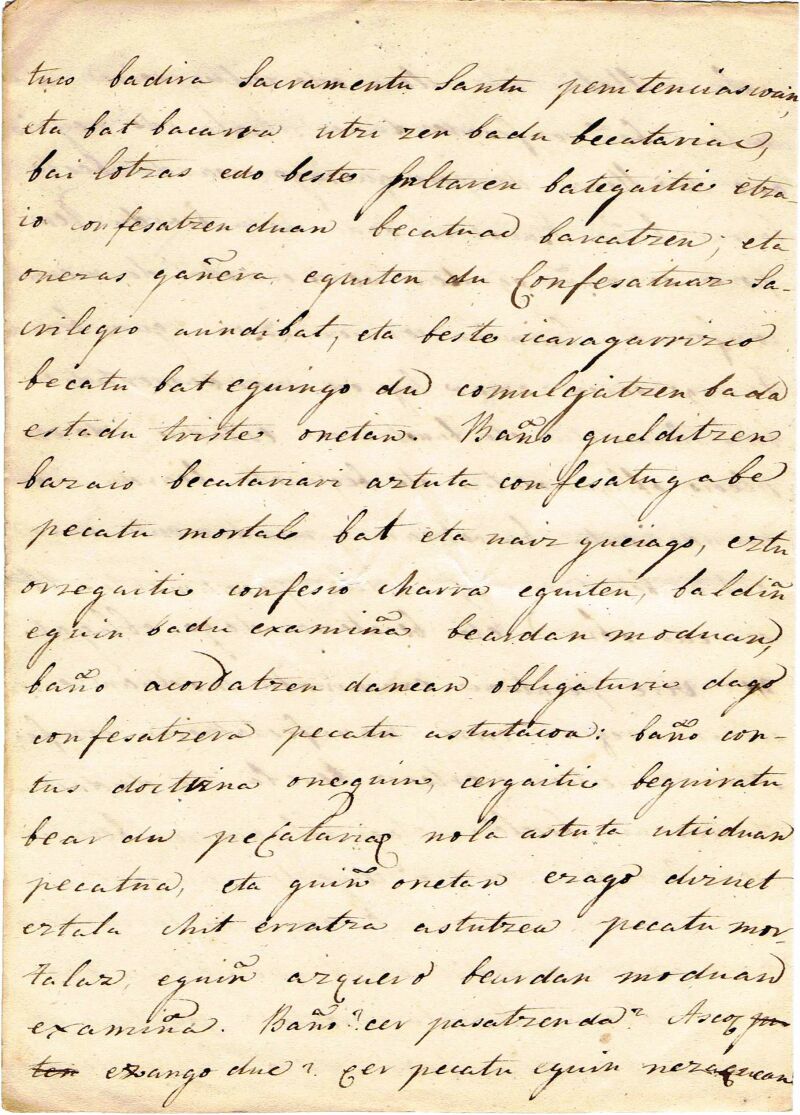 tuco badira Sacramentu Santu penitenciascoan,
eta bat bacarra utzi zen badu becatariac,
bai lotzas edo beste faltaren bategaitic etza-
io confesatzen duan becatuac barcatzen; eta
onezas gañera eguiten du Confesatuaz Sa-
crilegio aundibat, eta beste icaragarrizco
becatu bat eguingo du comulgatzen bada
estadu triste onetan. Baño guelditzen
bazaio becatariari aztuta confesatugabe
pecatu mortale bat eta naiz gueiago, eztu
orregaitic confesio charra eguiten, baldiñ
eguin badu examiña beardan moduan,
baño acordatzen danean obligaturic dago
confesatzera pecatu astutacoa: baño con-
tus doctrina oneguin, cergaitic beguiratu
bear du pecatariac nola astuta utziduan
pecatua, eta guiñ onetan ezago dizuet
eztala chit erratza astutzea pecatu mor-
talaz, eguiñ azquero beardan moduan
examiña. Baño? cer pasatzenda? Ascoc
ezango due? Cer pecatu eguin nezaquean